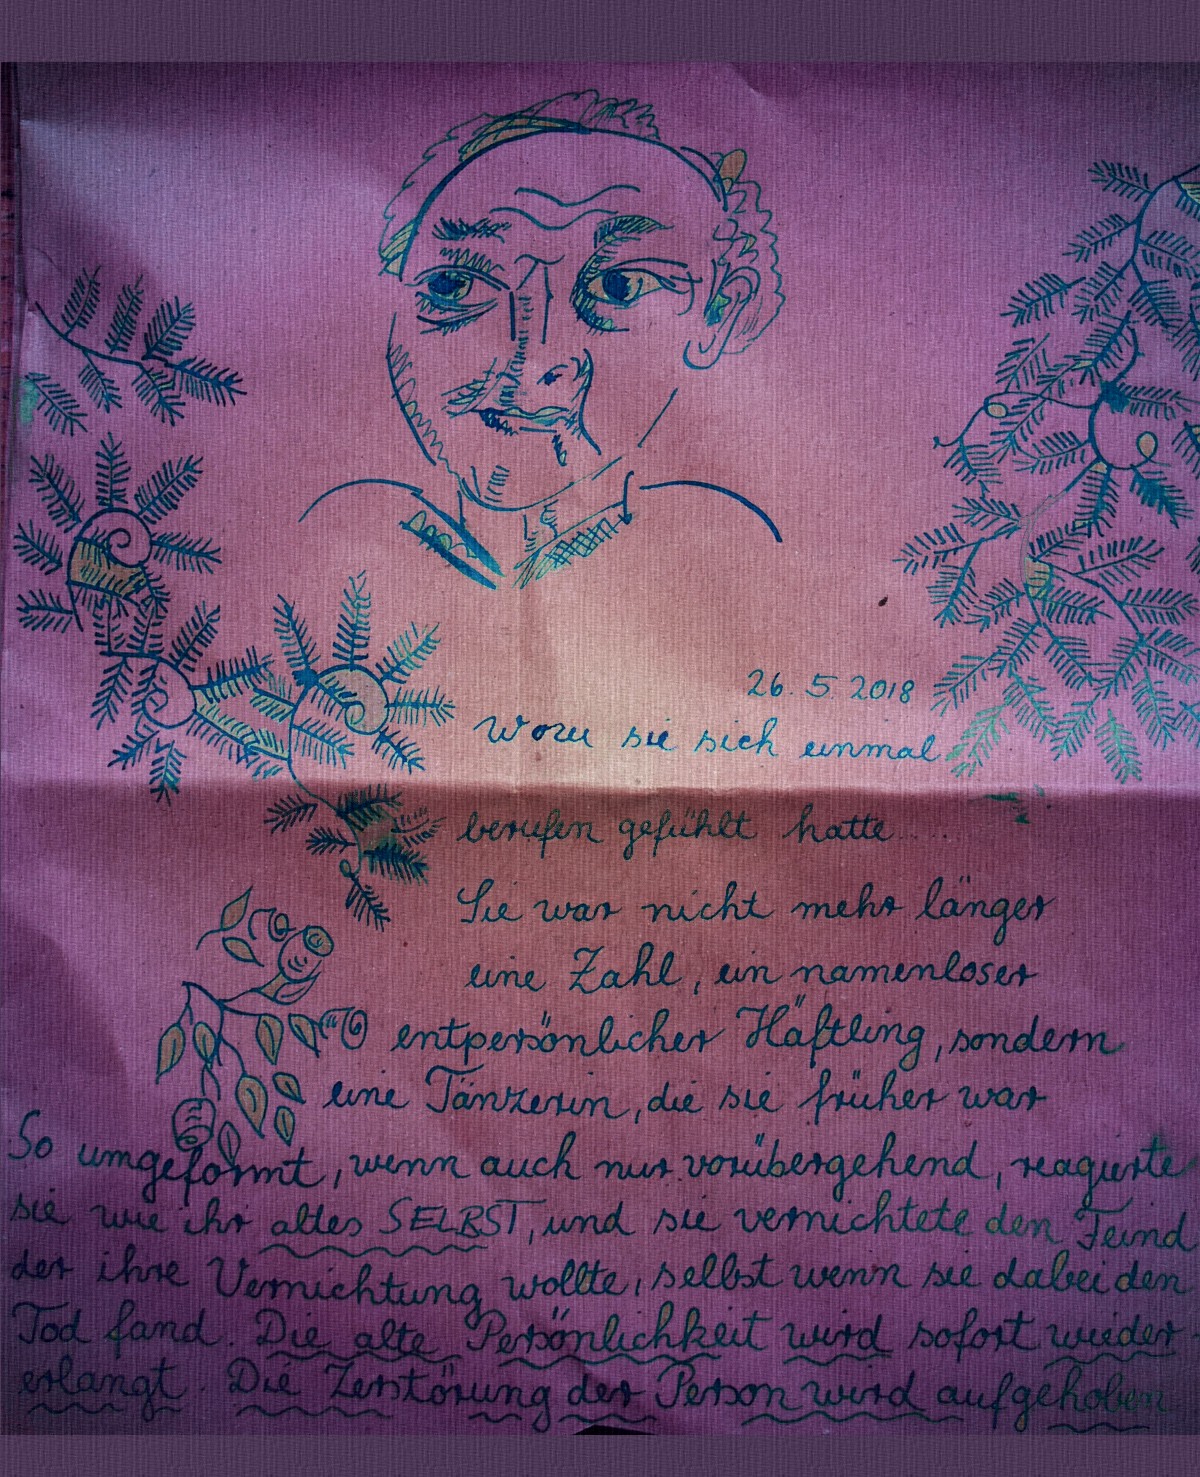 26.5.2018
Wozu sie sich einmal
berufen gefühlt hatte....
Sie war nicht mehr länger
eine Zahl, ein namenloser
entpersönlicher Häftling, sondern
eine Tänzerin, die sie früher war
So umgeformt, wenn auch nur vorübergehend, reagierte
sie wie ihr altes SELBST, und sie vernichtete den Feind
der ihre Vernichtung wollte, selbst wenn sie dabei den
Tod fand. Die alte Persönlichkeit wird sofort wieder
erlangt. Die Zerstörung der Person wird aufgehoben